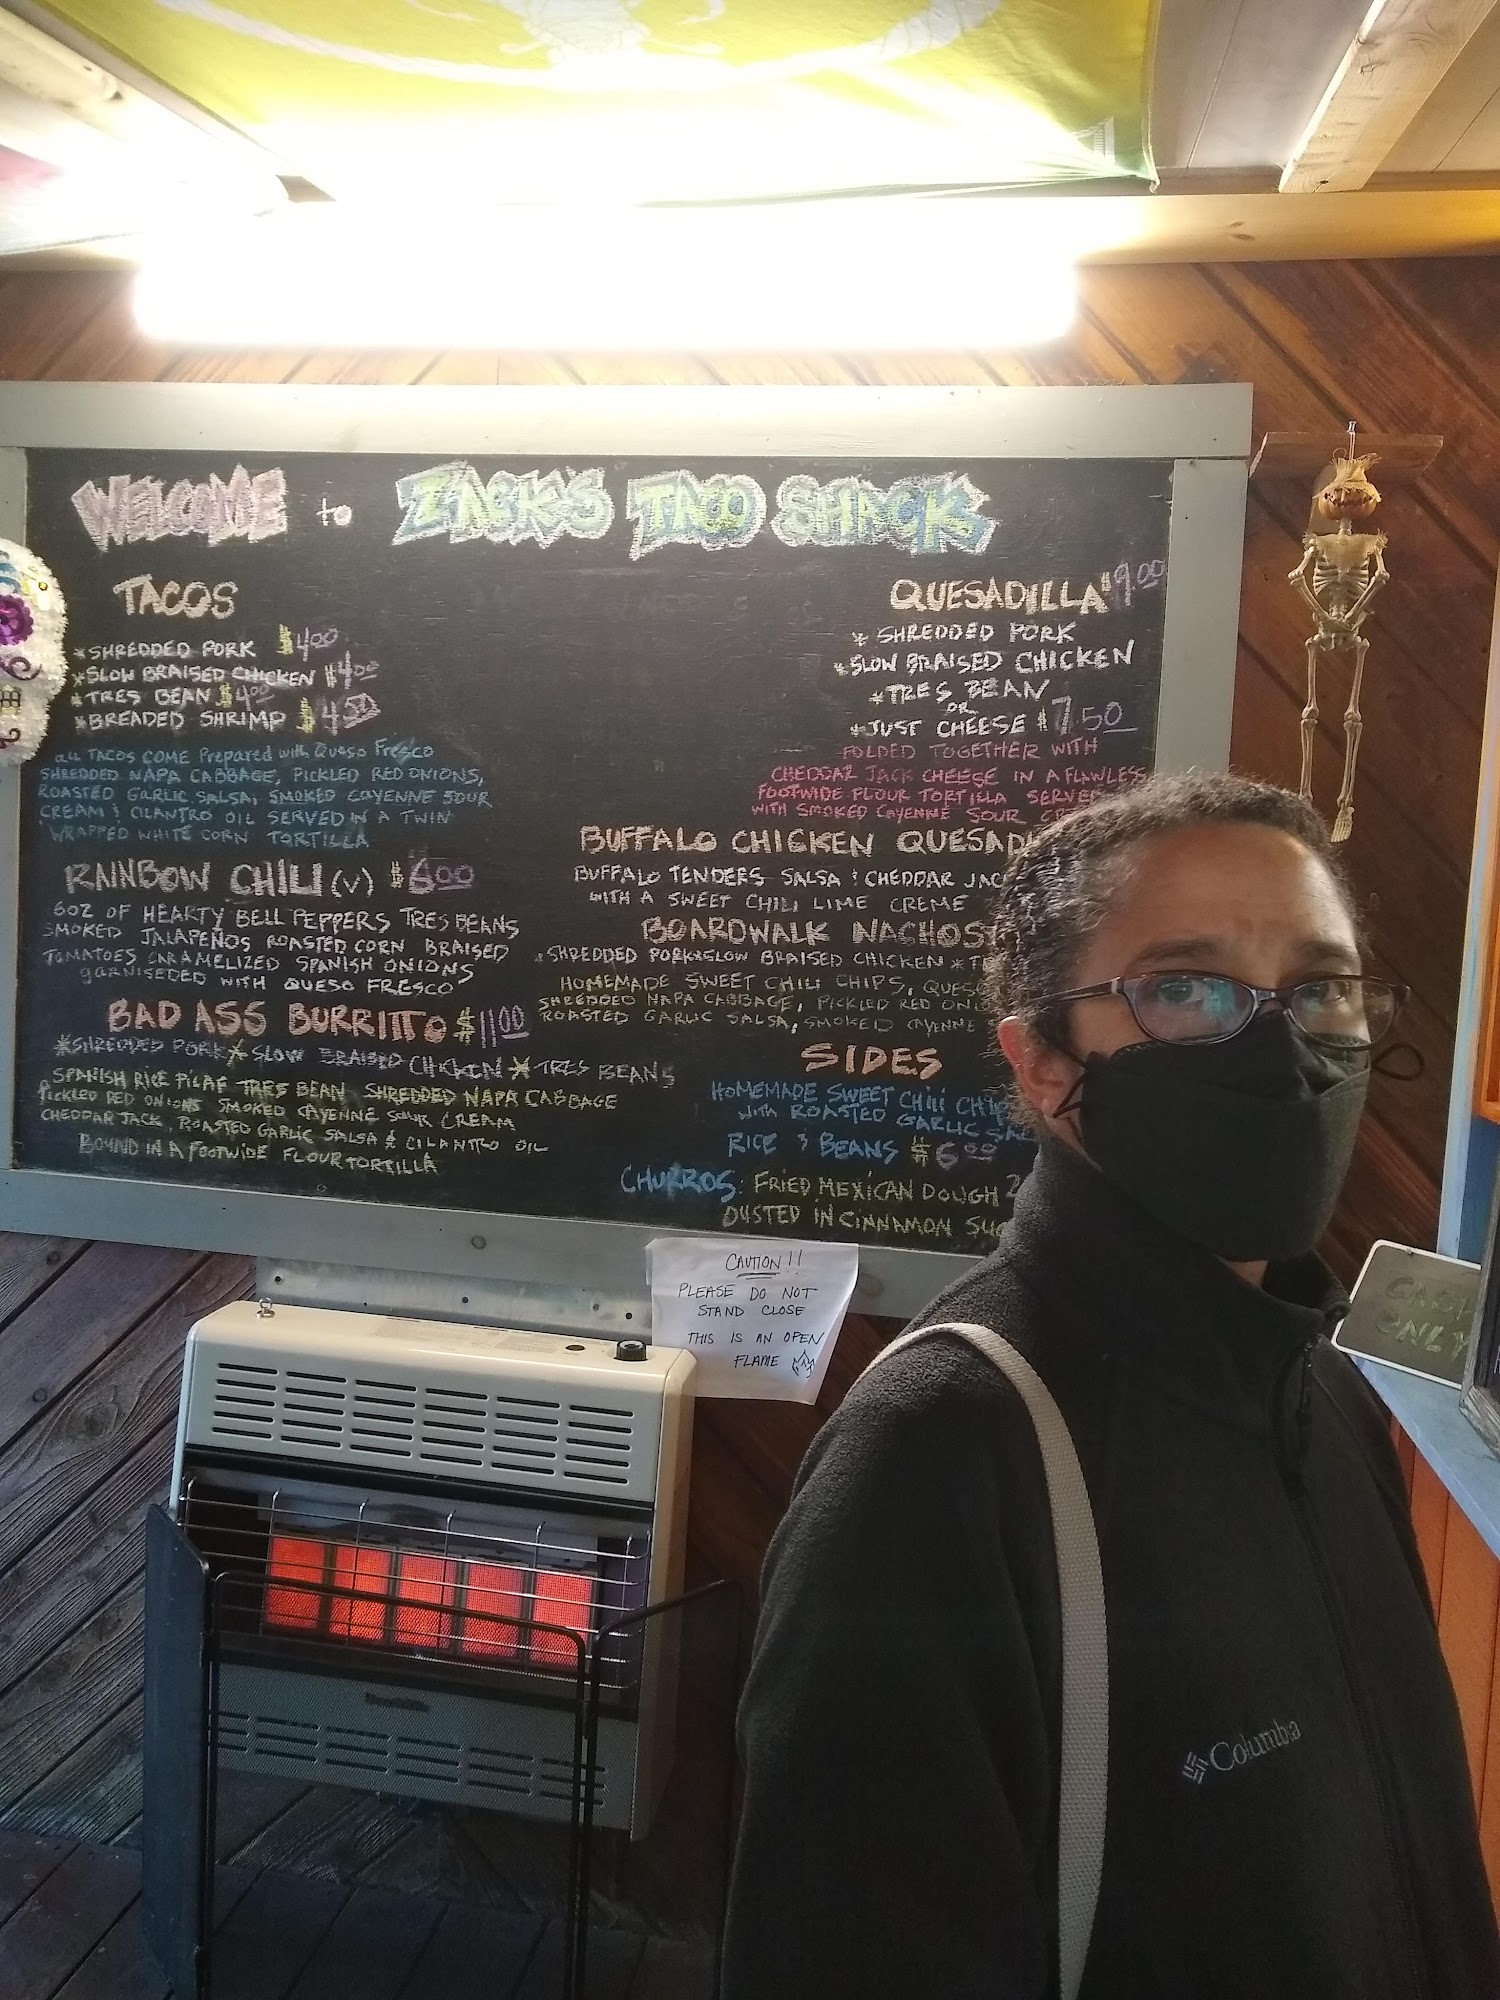 WELCOME to ZACK'S TACO SHACK
TACOS
*SHREDDED PORK $4.00
*SLOW BRAISED CHICKEN $4.00
*TRES BEAN $4.00
*BREADED SHRIMP $4.50
ALL TACOS COME Prepared with Queso Fresco
SHREDDED NAPA CABBAGE, PICKLED RED ONIONS,
ROASTED GARLIC SALSA, SMOKED CAYENNE SOUR
CREAM & CILANTRO OIL SERVED IN A TWIN
WRAPPED WHITE CORN TORTILLA
RAINBOW CHILI (V) $6.00
6OZ OF HEARTY BELL PEPPERS TRES BEANS
SMOKED JALAPEÑOS ROASTED CORN BRAISED
TOMATOES CARAMELIZED SPANISH ONIONS
GARNISEDED WITH QUESO FRESCO
BAD ASS BURRITTO $11.00
*SHREDDED PORK * SLOW BRAISED CHICKEN * TRES BEANS
SPANISH RICE PILAF TRES BEAN SHREDDED NAPA CABBAGE
PICKLED RED ONIONS SMOKED CAYENNE SOUR CREAM
CHEDDAR JACK, ROASTED GARLIC SALSA & CILANTRO OIL
BOUND IN A FOOTWIDE FLOUR TORTILLA
QUESADILLA $9.00
* SHREDDED PORK
*SLOW BRAISED CHICKEN
*TRES BEAN
OR
*JUST CHEESE $7.50
FOLDED TOGETHER WITH
CHEDDAR JACK CHEESE IN A FLAWLESS
FOOTWIDE FLOUR TORTILLA SERVE
WITH SMOKED CAYENNE SOUR
BUFFALO CHICKEN QUESAD
BUFFALO TENDERS SALSA & CHEDDAR JAC
WITH A SWEET CHILI LIME CREME
BOARDWALK NACHOS
*SHREDDED PORK*SLOW BRAISED CHICKEN *
HOMEMADE SWEET CHILI CHIPS, QUES
SHREDDED NAPA CABBAGE, PICKLED RED ONI
ROASTED GARLIC SALSA, SMOKED CAYENNE
SIDES
HOMEMADE SWEET CHILI CHIP
WITH ROASTED GARLIC SAL
RICE & BEANS $6.00
CHURROS: FRIED MEXICAN DOUGH 2
DUSTED IN CINNAMON SU
CAUTION!!
PLEASE DO NOT
STAND CLOSE
THIS IS AN OPEN
FLAME
CASH
ONLY
Columbia